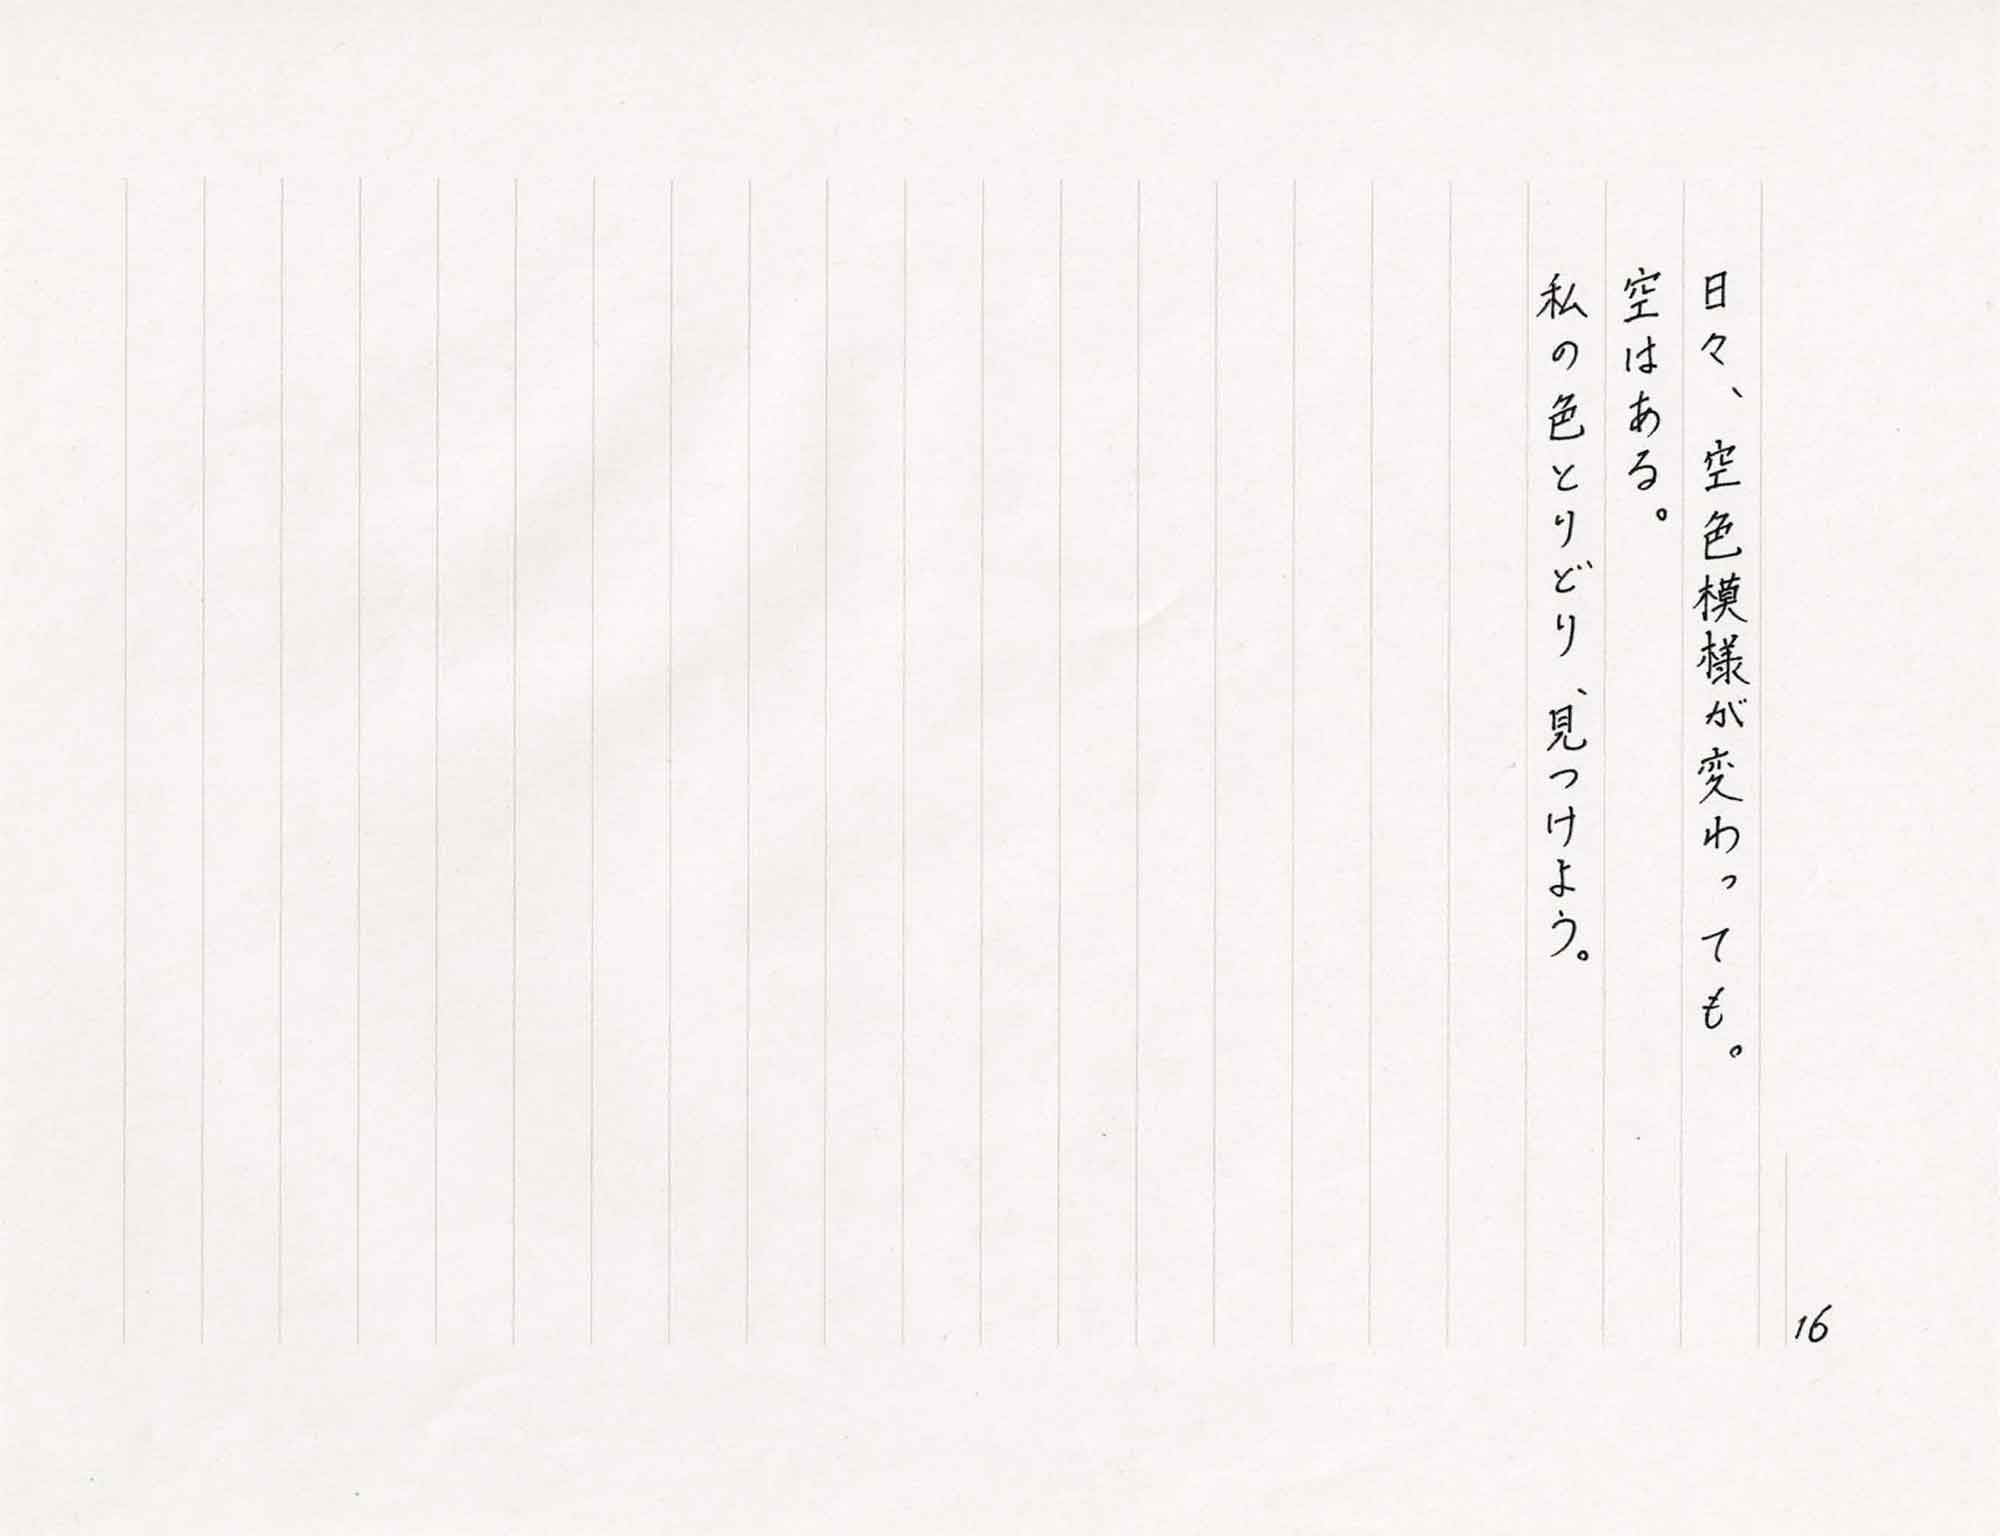 日々、空色模様が変わっても。
空はある。
私の色とりどり、見つけよう。
16